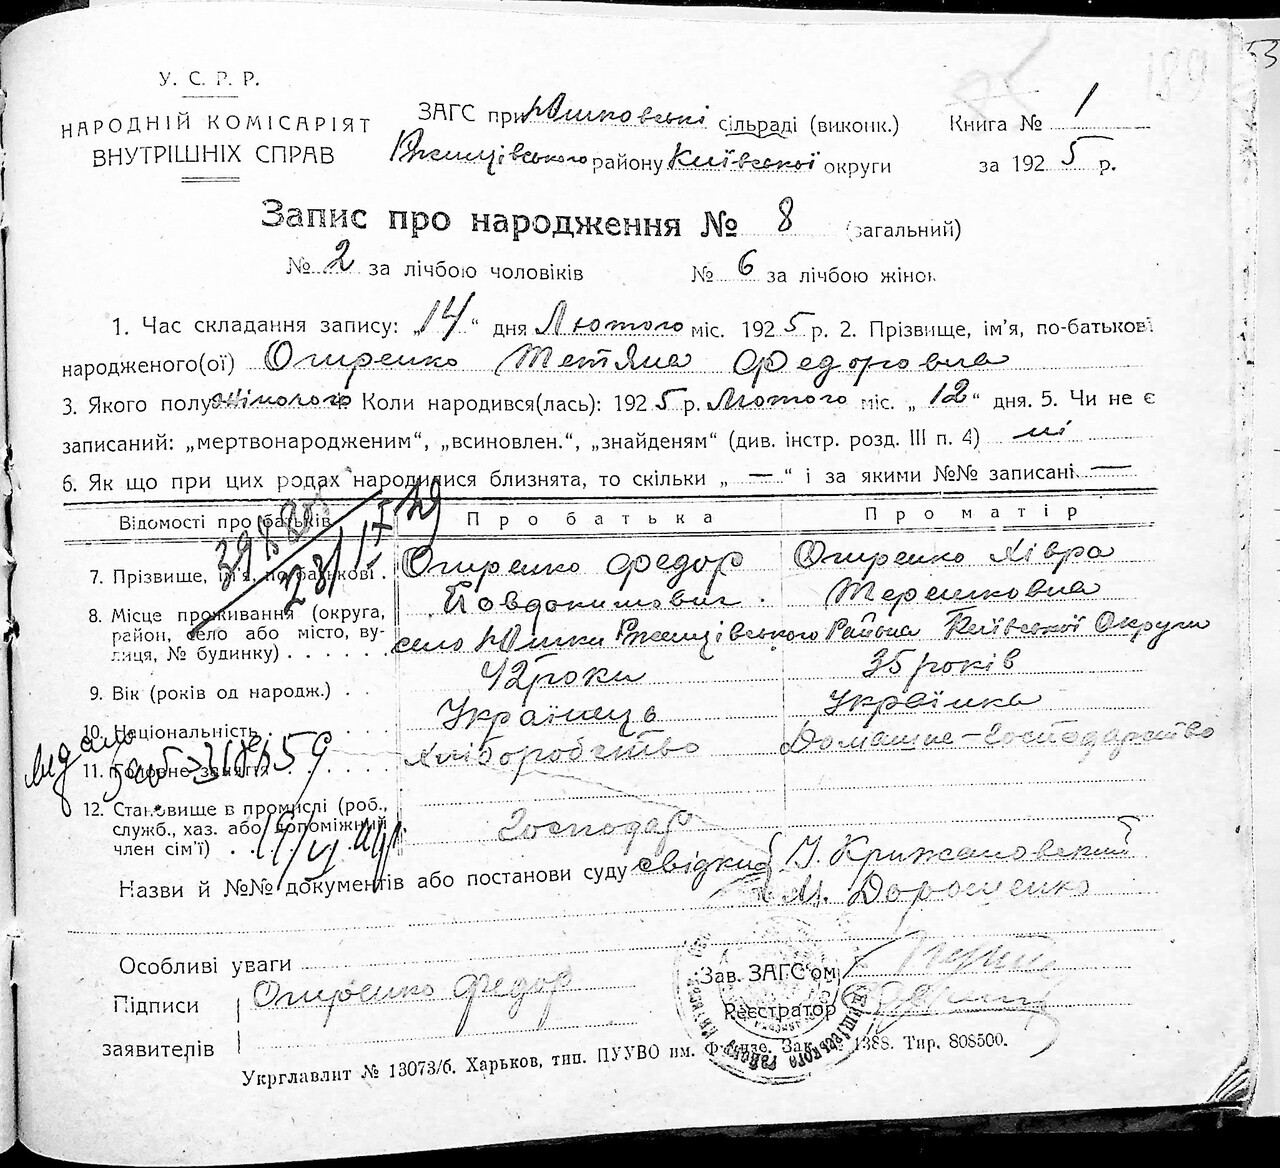 У. С. Р. Р.
НАРОДНІЙ КОМІСАРІЯТ
ВНУТРІШНІХ СПРАВ
ЗАГС при Юшковські сільраді (виконк.)
Ржищівського району Київської округи
Книга № 1
за 1925 р.
Запис про народження № 8 (загальний)
№ 2 за лічбою чоловіків № 6 за лічбою жінок
1. Час складання запису: „14“ дня Лютого міс. 1925 р. 2. Прізвище, ім'я, по-батькові
народженого(ої) Огиренко Тетяна Федоровна
3. Якого полу жіночого Коли народився(лась): 1925 р. Лютого міс. „12“ дня. 5. Чи не є
записаний: „мертвонародженим“, „всиновлен.“, „знайденям“ (див. інстр. розд. III п. 4) ні
6. Як що при цих родах народилися близнята, то скільки „ — “ і за якими №№ записані —
Відомості про батьків Про батька Про матір
7. Прізвище, ім'я, по-батькові . Огиренко Федор Огиренко Хівра
Йовдокимович . Терешковна
8. Місце проживання (округа,
район, село або місто, ву-
лиця, № будинку) . . . . . . село Юшки Ржищівського Района Київської Округи
9. Вік (років од народж.) . . 42 роки 35 років
10. Національність . . Українець Українка
11. Головне заняття . . . . . . Хліборобство Домашнє-Господарство
12. Становище в промислі (роб.,
служб., хаз. або допоміжний
член сім'ї) . . Господар
Назви й №№ документів або постанови суду свідки І. Крижановский
М. Дорошенко
Особливі уваги
Підписи
заявителів
Огиренко Федор
Зав. ЗАГС'ом
Реєстратор
Укрглавлит № 13073/б. Харьков, тип. ПУУВО им. Фрунзе. Зак. № 1388. Тир. 808500.